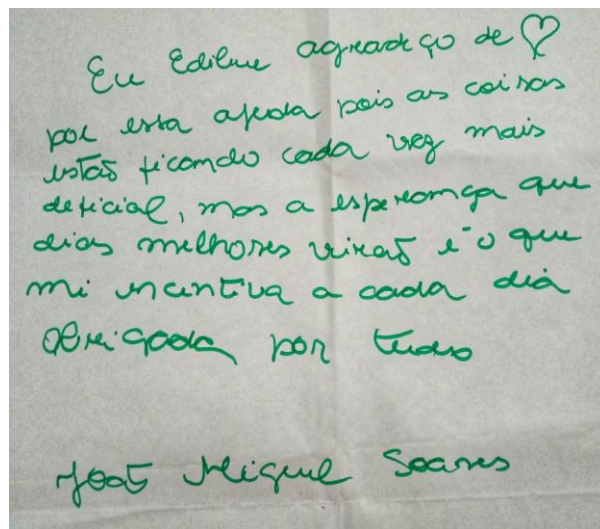 Eu Edilene agradeço de ♡
por essa ajuda pois as coisas
estão ficando cada vez mais
deficial, mas a esperança que
dias melhores virão é o que
mi incentiva a cada dia
Obrigada por tudo
João Miguel Soares